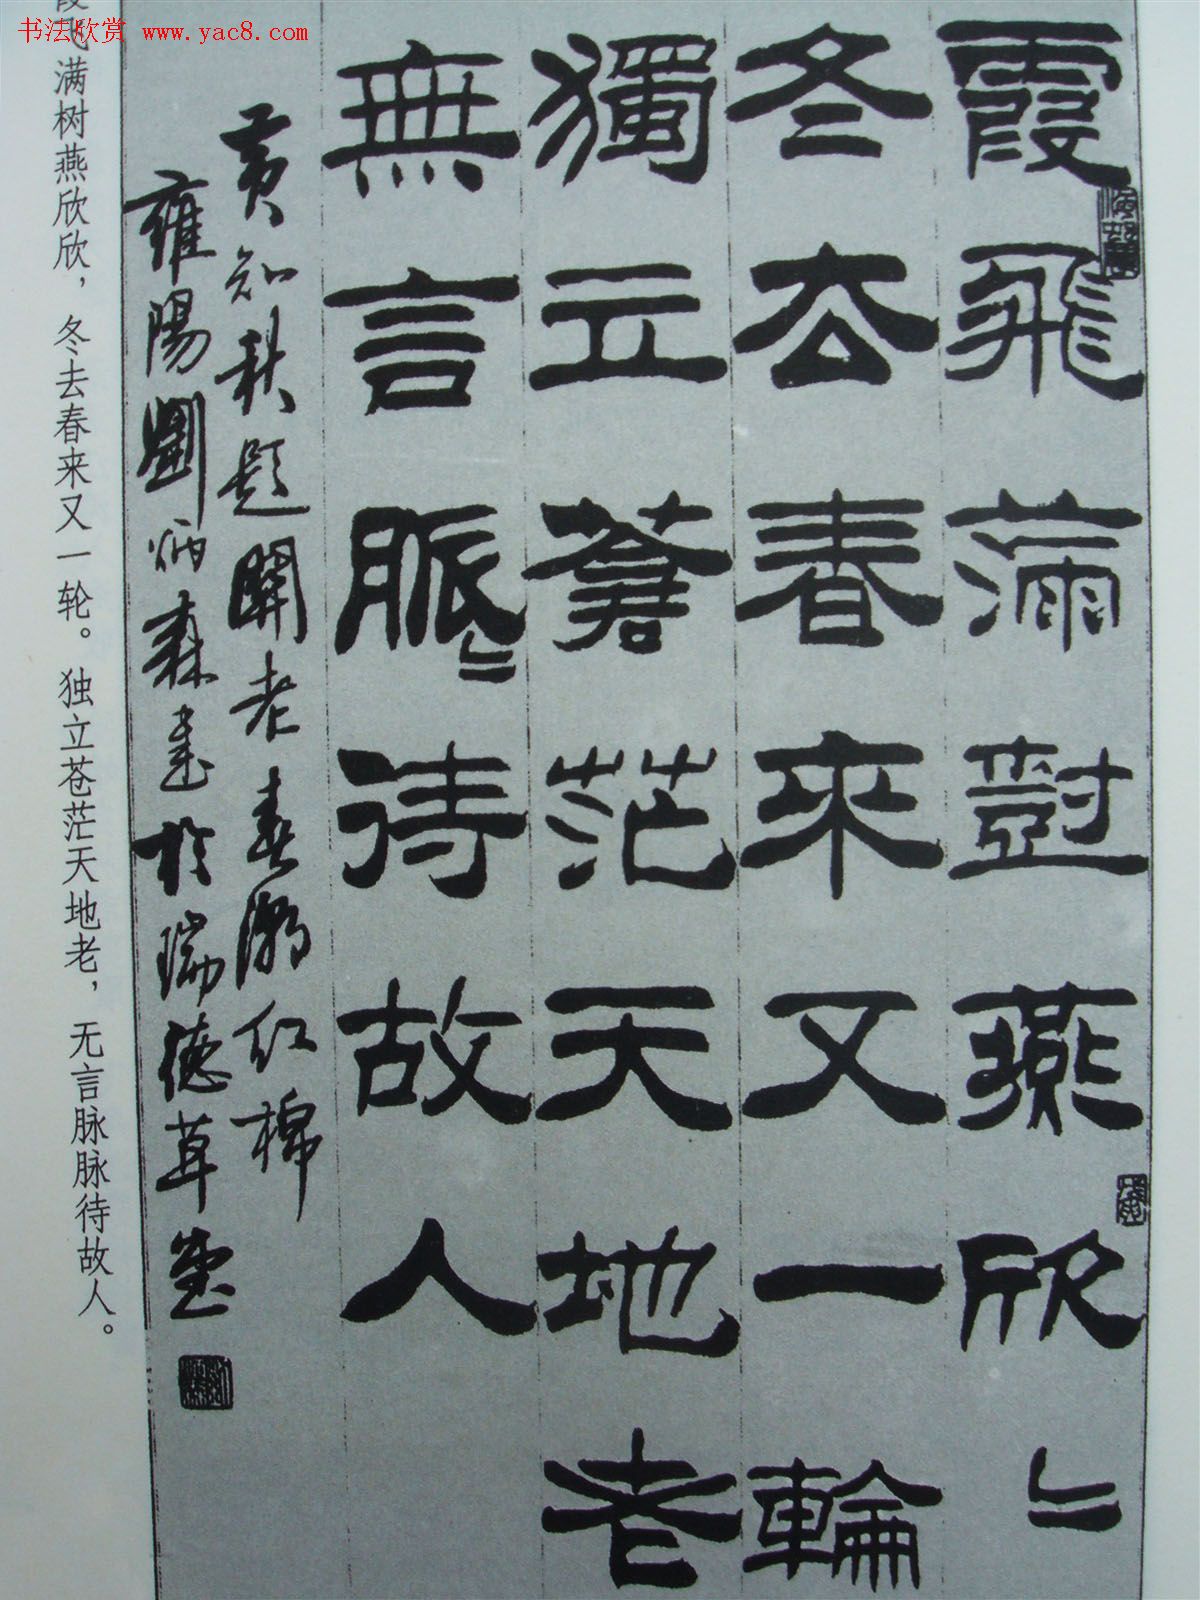 书法欣赏 www.yac8.com
霞飛滿樹燕欣〻
冬去春來又一輪
獨立蒼茫天地老
無言脈〻待故人
黄知秋題關老春潮紅棉
雍陽劉炳森書於瑞德草堂
霞飞满树燕欣欣，冬去春来又一轮。独立苍茫天地老，无言脉脉待故人。